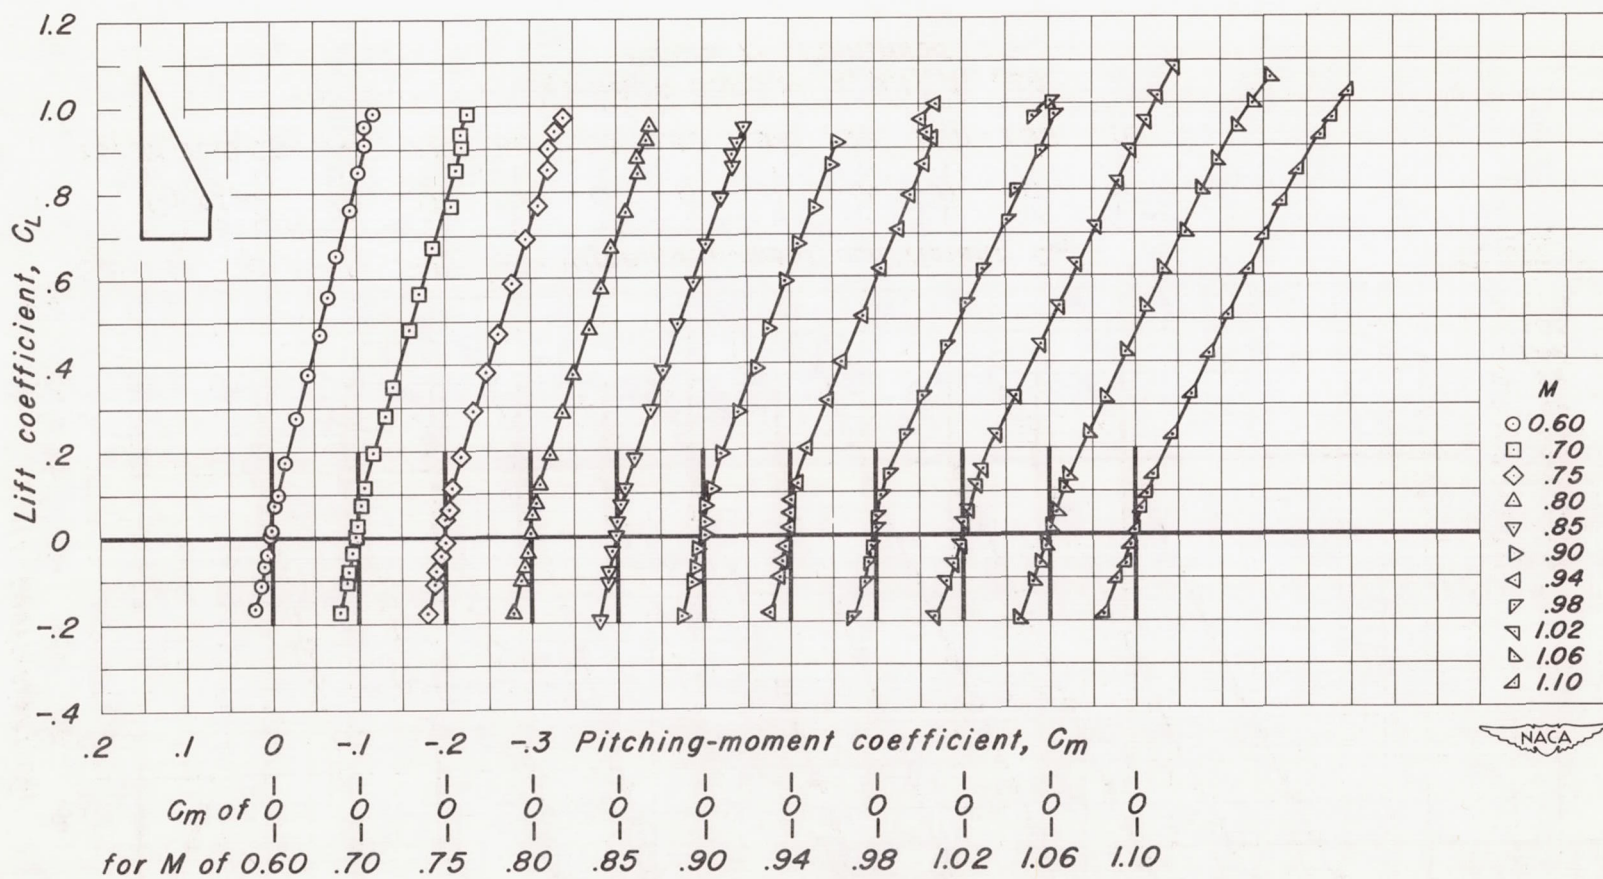 1.2
1.0
.8
.6
.4
.2
0
-.2
-.4
Lift coefficient, CL
M
0.60
.70
.75
.80
.85
.90
.94
.98
1.02
1.06
1.10
NACA
.2 .1 0 -.1 -.2 -.3 Pitching-moment coefficient, Cm
Cm of 0 0 0 0 0 0 0 0 0 0 0
for M of 0.60 .70 .75 .80 .85 .90 .94 .98 1.02 1.06 1.10